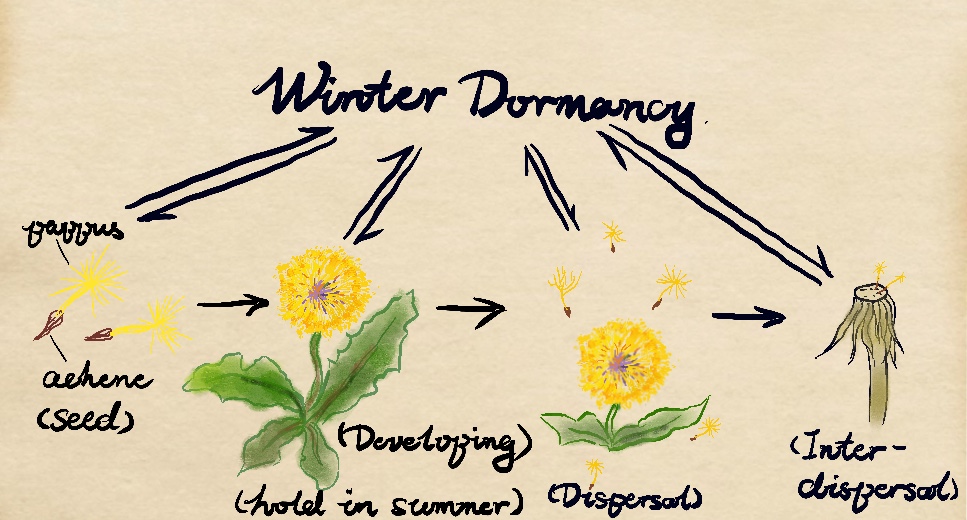 Winter Dormancy
pappus
aehene
(seed)
(Developing)
(hold in summer)
(Dispersal)
(Inter-
dispersal)